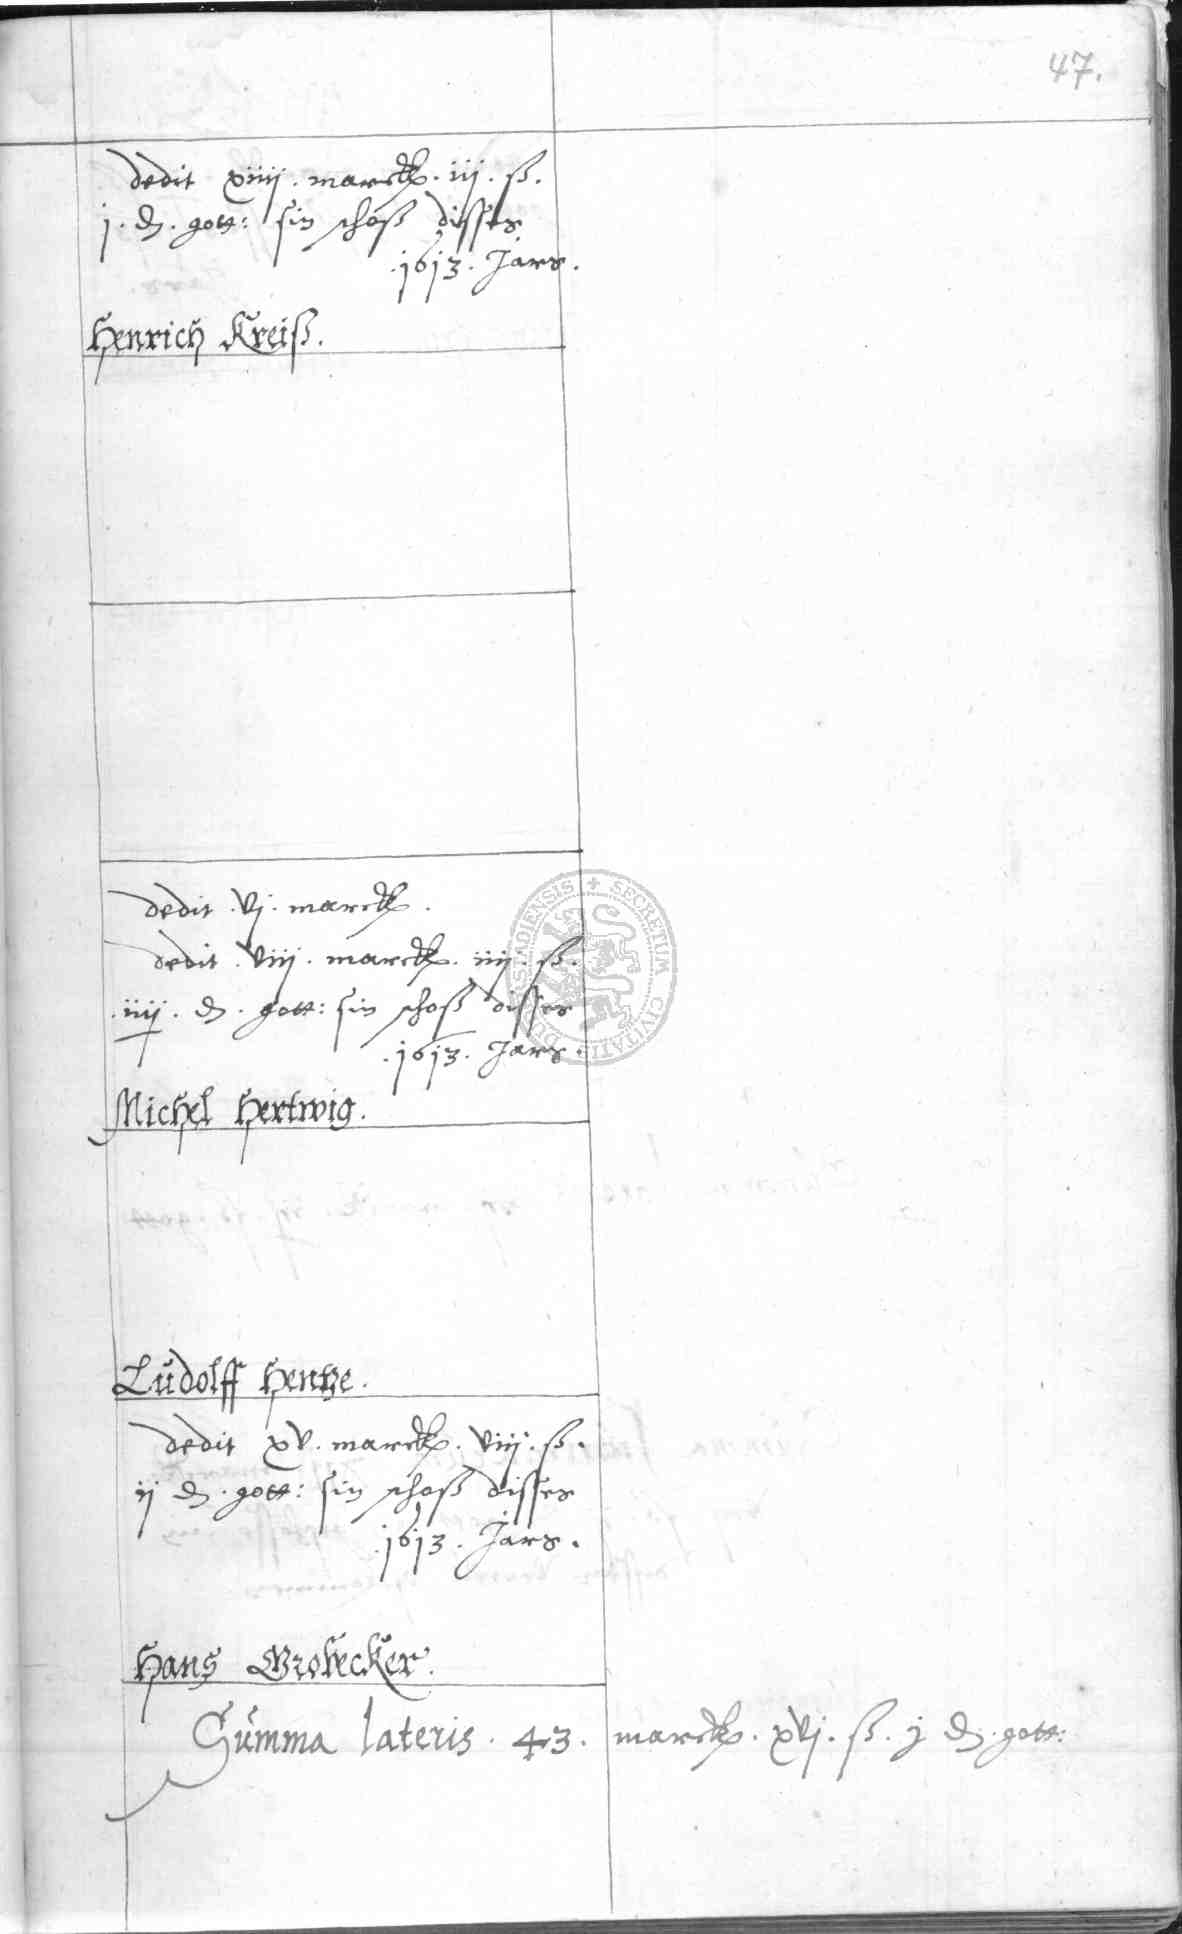 47.
dedit xiiij. marck. iij. ß.
j. ₰. gott: sin schoß disses
.1613. Jars.
Henrich Kreiß.
dedit .vj. marck.
dedit .viij. marck. iiij. ß.
.iiij. ₰. gott: sin schoß disses
.1613. Jars.
Michel Hertwig.
Ludolff Hentze.
dedit xv. marck. viij. ß.
ij ₰. gott: sin schoß disses
.1613. Jars.
Hans Grobecker.
Summa lateris. 43. marck. xvj. ß. j ₰. gott:
SECRETUM CIVITATIS DUDERSTADIENSIS